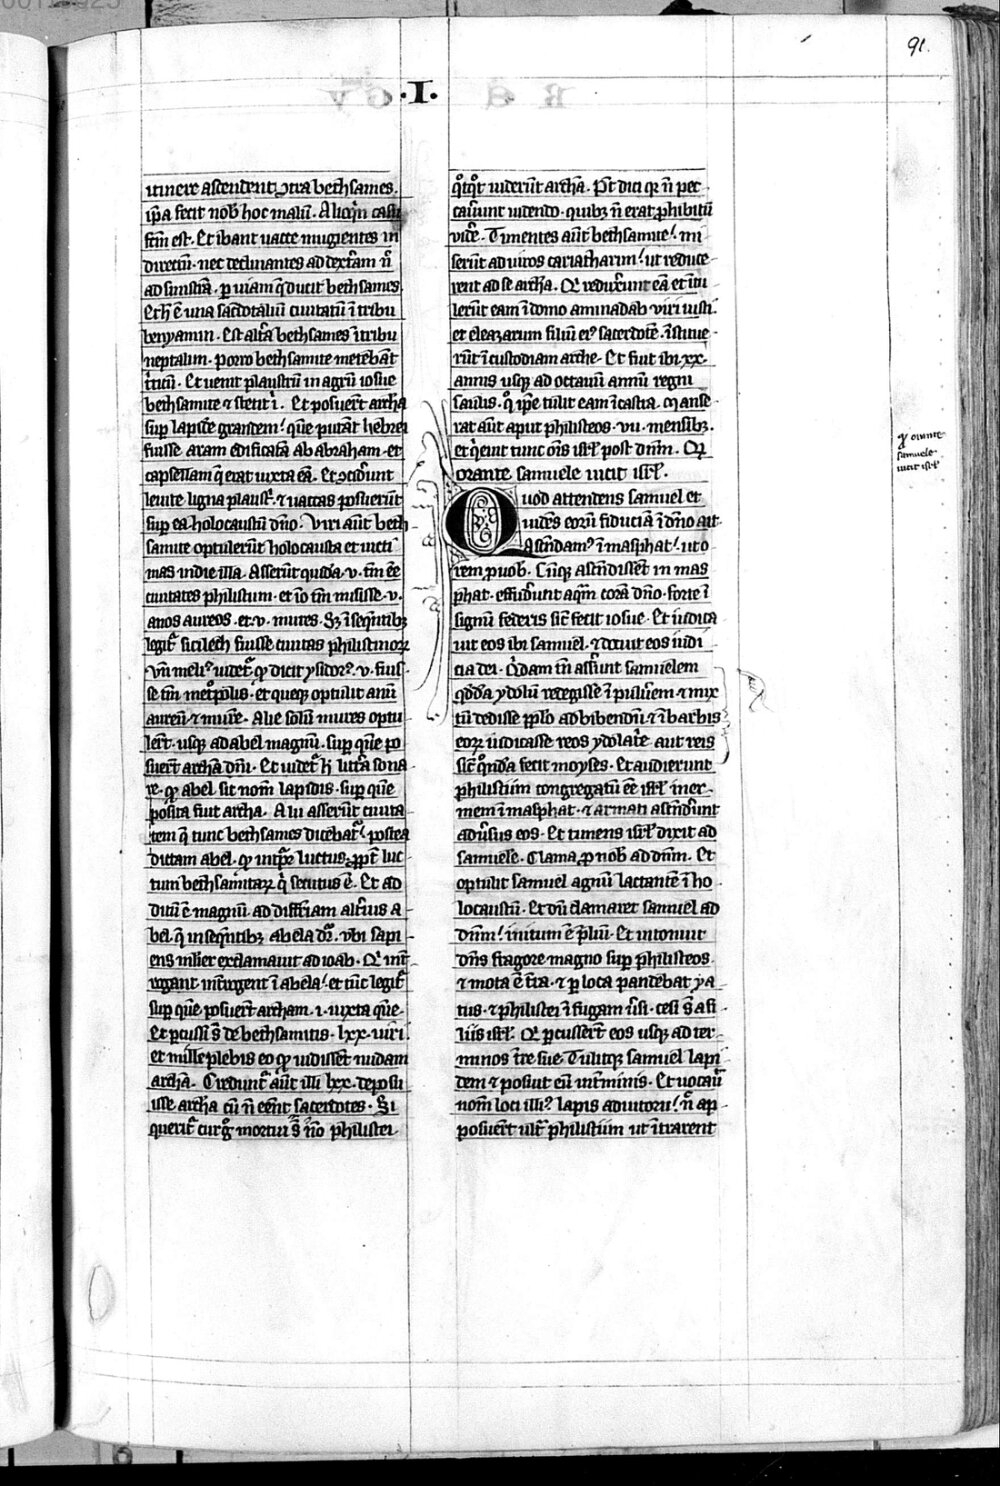 91.
.I.
itinere ascenderit ↄtra bethsames.
ip̄a fecit nob̄ hoc malū. Alioq̄n casu
fc̄m est. Et ibant uacce mugientes in
directū. nec declinantes ad dext̄am ūl
ad sinistrā. ꝑ uiam q̄ ducit bethsames.
Et h̄ ē una sac̄dotaliū ciuitatū ī tribu
benyamin. Est alt̄a bethsames ī tribu
neptalim. Porro bethsamite metebāt
t̄ticū. Et uenit plaustrū in agrū iosue
bethsamite ⁊ stetit ī. Et posuer̄t archā
suꝑ lapidē grandem! quē putāt hebrei
fuisse aram edificatā ab abraham. et
capsellam q̄ erat iuxta eā. Et ↄcider̄unt
leuite ligna plaust̄. ⁊ uaccas posuer̄unt
suꝑ ea holocaustū dn̄o. Viri aūt beth
samite optuler̄unt holocausta et uicti
mas in die illa. Asser̄unt quidā .v. tm̄ eē
ciuitates philistim. et iō tm̄ misisse .v.
anos aureos. et .v. mures. Sꝫ ī seq̄ntibꝫ
legit̄ sicilech fuisse ciuitas philistinoꝝ
Vn̄ meliꝰ uidet̄ ꝙ dicit ysidorꝰ .v. fuis
se tm̄ met̄polis. et queqꝫ optulit anū
aureū ⁊ murē. Alie solū mures optu
ler̄t. usqꝫ ad abel magnū. suꝑ quē po
suer̄t archā dn̄i. Et uidet̄ h̄ litt̄a sona
re. ꝙ abel sit nom̄ lapidis. suꝑ quē
posita fuit archa. Alii asser̄unt ciuita
tem q̄ tunc bethsames dicebat̄! postea
dictam abel. ꝙ int̄p̄t̄ luctus. ꝓpt̄ luc
tum bethsamitaꝝ q̄ secutus ē. Et ad
ditū ē magnū. ad diff̄iam alt̄ius a
bel. q̄ in seq̄ntibꝫ abela dr̄. vbi sapi
ens mlier exclamauit ad ioab. Qͥ int̄
rogant int̄rogent ī abela! et tūc legit̄
suꝑ quē posuer̄t archam .i. iuxta quē.
Et ꝑcussi s̄ de bethsamitis .lxx. uiri.
et mille plebis eo ꝙ uidissēt nudam
archā. Credunt̄ aūt illi lxx. deposu
isse archā cū n̄ eēnt sacerdotes. Si
querit̄ cur ḡ mortui s̄ n̄o philistei
qͦtqͦt uider̄unt archā. Pōt dici qꝛ n̄ pec
cauer̄unt uidendo. quibꝫ n̄ erat ꝓhibitū
vidē̄. Timentes aūt bethsamite! mi
serūt ad uiros cariathiarim! ut reduce
rent ad se archā. Qͥ reduxer̄unt eā et ītu
ler̄unt eam ī domo aminadab viri iusti.
et eleazarum filiū eiꝰ sacerdotē. īstitue
rūt ī custodiam arche. Et fuit ibi .xx.
annis usqꝫ ad octauū annū regni
saulis. qͦ ip̄e tulit eam ī castra. Manse
rat aūt aput philisteos .vii. mensibꝫ.
et q̄euit tunc om̄is isrl̄ post dn̄m. Qͥ
orante samuele uicit isrl̄.
Quod attendens samuel et
uidēs eorū fiduciā ī dn̄o ait.
Ascendamꝰ ī masphat! ut o
rem ꝓ uob̄. Cūqꝫ ascendissēt in mas
phat. effuder̄unt aquā corā dn̄o. forte ī
signū federis sic̄ fecit iosue. Et iudica
uit eos ibi samuel. ⁊ docuit eos iudi
cia dei. Qͥdam tn̄ asser̄unt samuelem
qd̄dā ydolū redegisse ī puluerem ⁊ mix
tū dedisse ppl̄o ad bibendū ⁊ ī barbis
eoꝝ iudicasse reos ydolatr̄e aut reis
sic̄ qͦndā fecit moyses. Et audierunt
philistiim congregatū eē isrl̄ iner
mem ī masphat. ⁊ armati ascender̄unt
adūsus eos. Et timens isrl̄ dixit ad
samuele. Clama ꝓ nob̄ ad dn̄m. Et
optulit samuel agnū lactantē ī ho
locaustū. Et dū clamaret samuel ad
dn̄m! initum ē p̄liū. Et intonuit
dn̄s fragore magno suꝑ philisteos.
⁊ mota ē t̄ra. ⁊ ꝑ loca pandebat hya
tus. ⁊ philistei ī fugam ūsi. cesi s̄ a fi
liis isrl̄. Qͥ ꝑcusser̄t eos usqꝫ ad ter
minos t̄re sue. Tulitqꝫ samuel lapi
dem ⁊ posuit eū in t̄minis. Et uocauit
nom̄ loci illiꝰ lapis adiutorii! n̄ ap
posuer̄t ult̄ philistiim ut ītrarent
samuele
uicit isrl̄